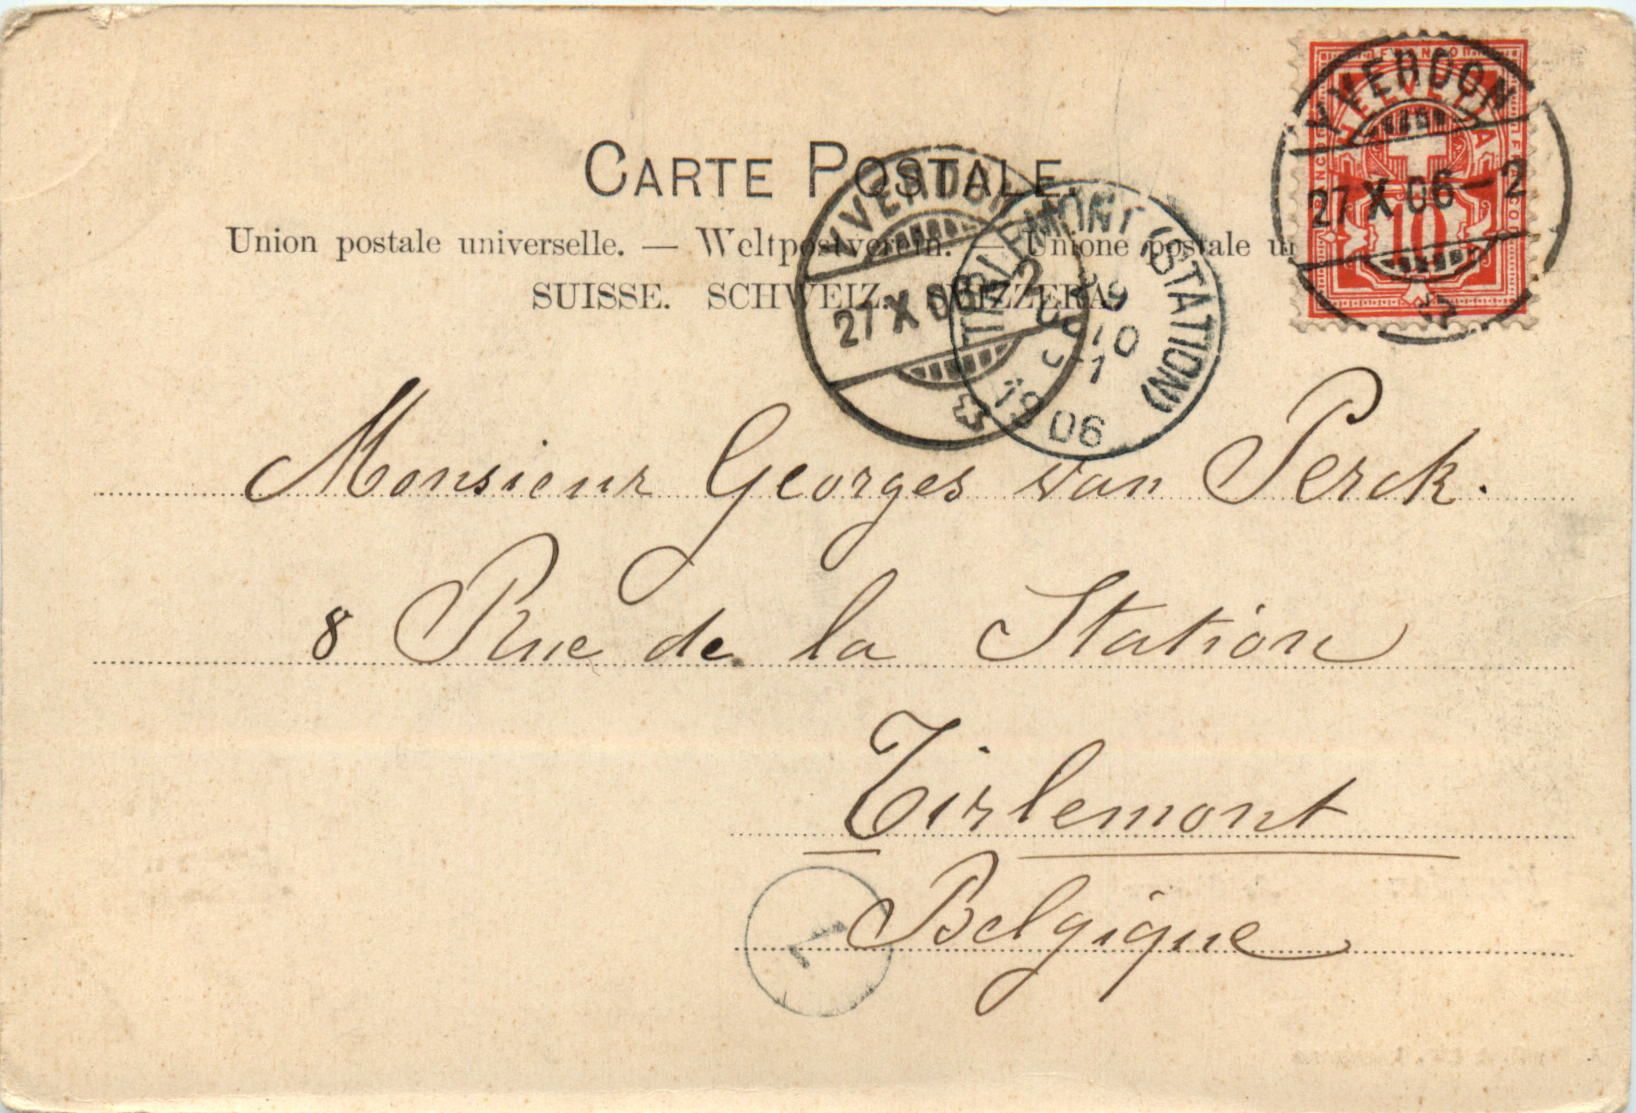 CARTE POSTALE.
Union postale universelle. — Weltpostverein. — Unione postale
SUISSE. SCHWEIZ. SVIZZERA.
YVERDON
27 X 06 - 2
HELVETIA
10
YVERDON
27 X 06 2
TIRLEMONT (STATION)
1906
Monsieur Georges van Perck.
8 Rue de la Station
Tirlemont
Belgique
1